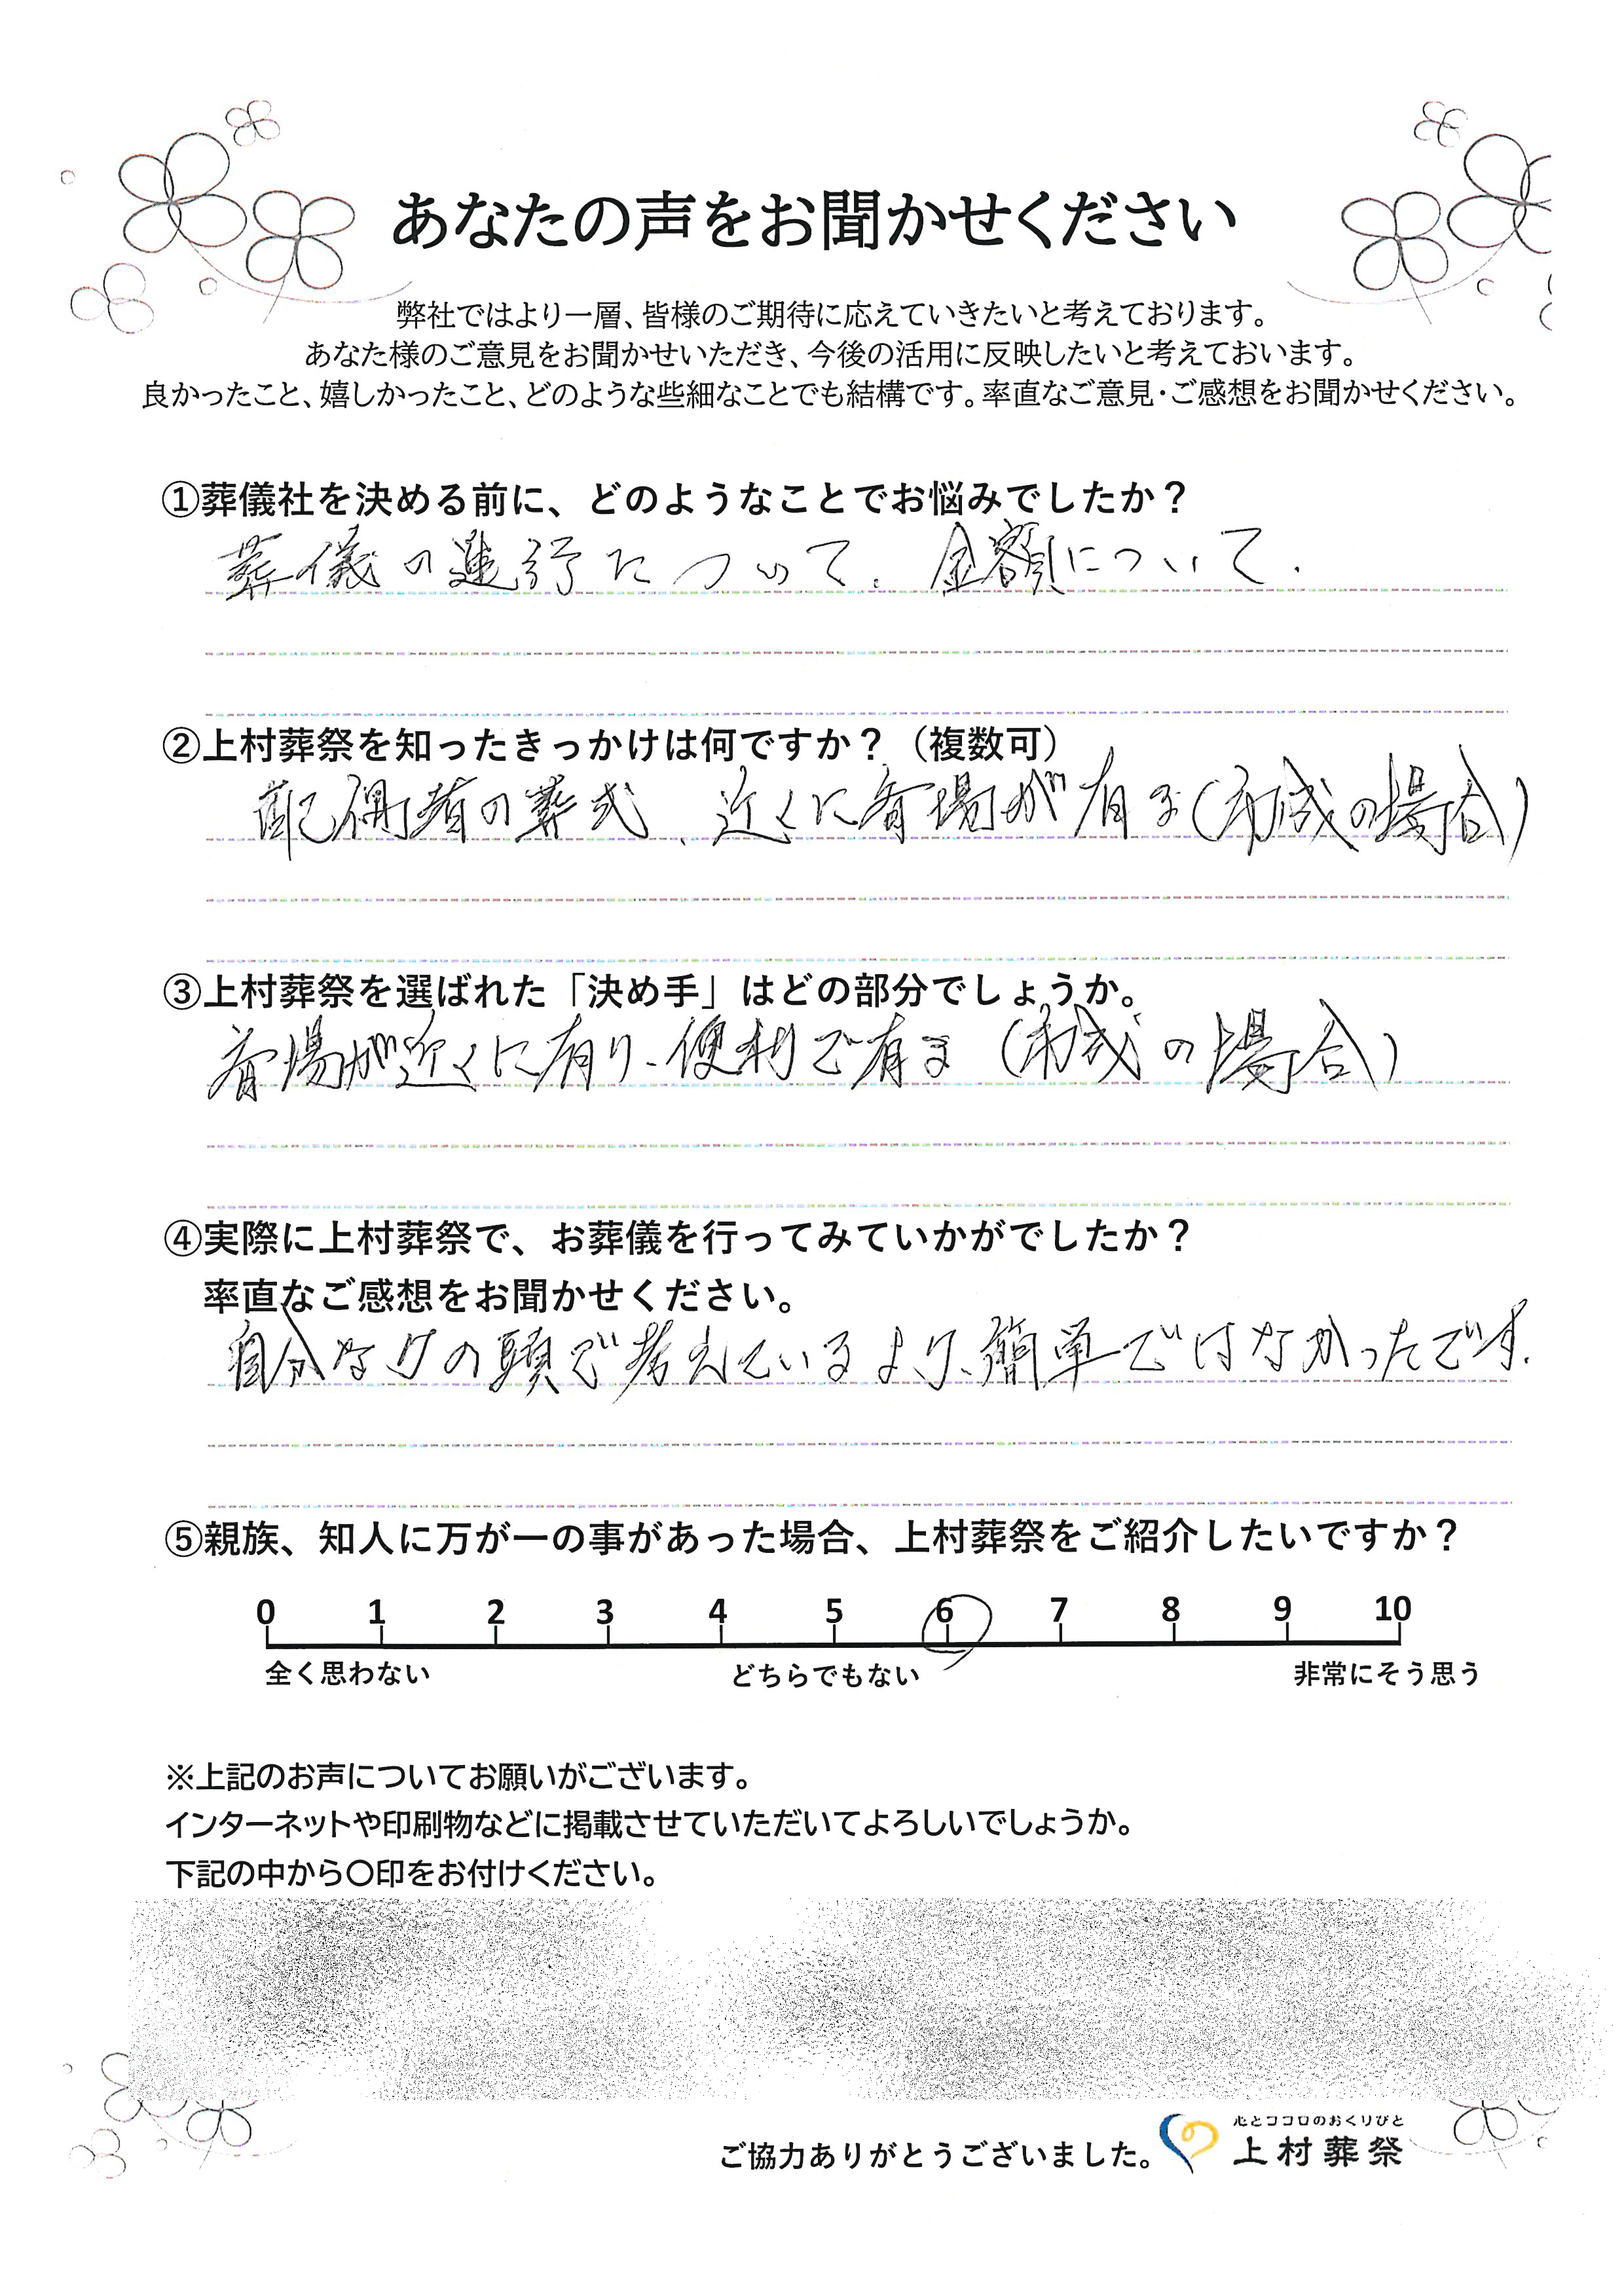 あなたの声をお聞かせください
弊社ではより一層、皆様のご期待に応えていきたいと考えております。
あなた様のご意見をお聞かせいただき、今後の活用に反映したいと考えておいます。
良かったこと、嬉しかったこと、どのような些細なことでも結構です。率直なご意見・ご感想をお聞かせください。
①葬儀社を決める前に、どのようなことでお悩みでしたか？
葬儀の進行について、金額について.
②上村葬祭を知ったきっかけは何ですか？（複数可）
配偶者の葬式、近くに斎場が有る(の場合)
③上村葬祭を選ばれた「決め手」はどの部分でしょうか。
斎場が近くに有り、便利で有る(の場合)
④実際に上村葬祭で、お葬儀を行ってみていかがでしたか？
率直なご感想をお聞かせください。
自分なりの頭で考えているより、簡単ではなかったです.
⑤親族、知人に万が一の事があった場合、上村葬祭をご紹介したいですか？
0 1 2 3 4 5 6 7 8 9 10
全く思わない どちらでもない 非常にそう思う
※上記のお声についてお願いがございます。
インターネットや印刷物などに掲載させていただいてよろしいでしょうか。
下記の中から〇印をお付けください。
心とココロのおくりびと
ご協力ありがとうございました。 上村葬祭